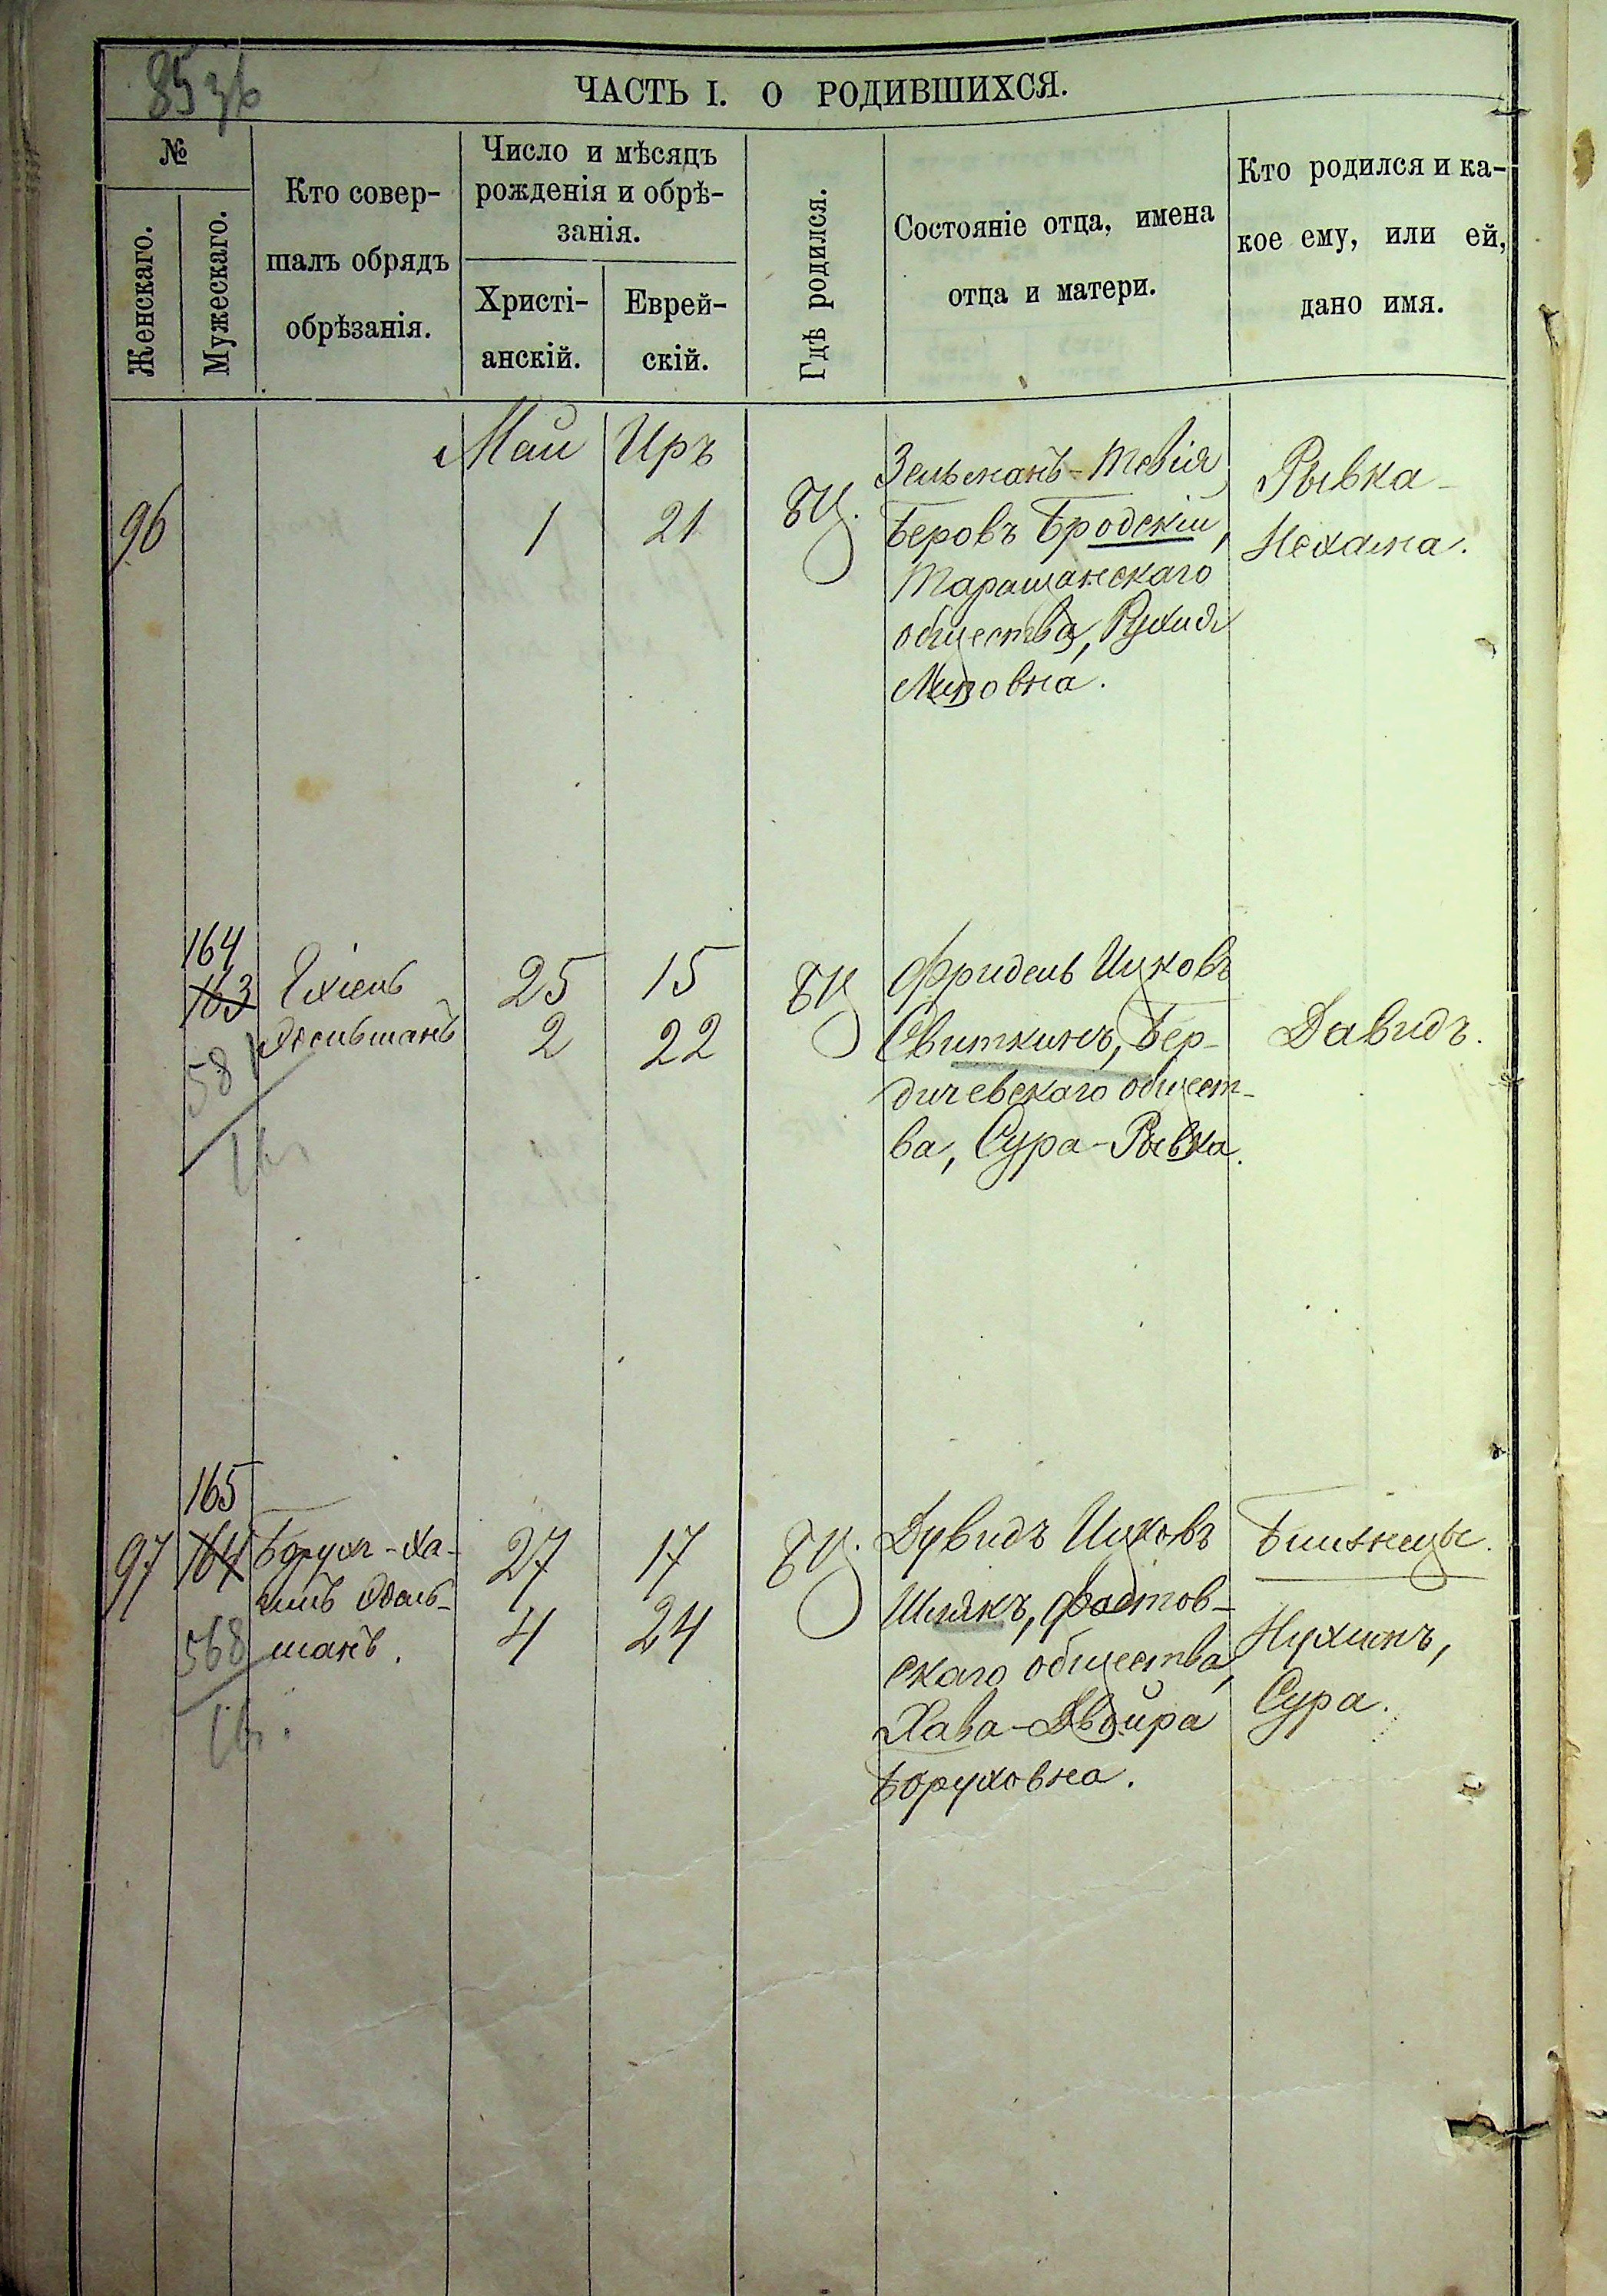 85 зв
ЧАСТЬ I. О РОДИВШИХСЯ.
№
Женскаго.
Мужескаго.
Кто совер-
шалъ обрядъ
обрѣзанія.
Число и мѣсяцъ
рожденія и обрѣ-
занія.
Христі-
анскій.
Еврей-
скій.
Гдѣ родился.
Состояніе отца, имена
отца и матери.
Кто родился и ка-
кое ему, или ей,
дано имя.
Маи Иръ
96
1
21
БЦ.
Зельманъ-Тевія
Беровъ Бродскій,
Таращанскаго
общества, Рухля
Мновна.
Рывка-
Нехама.
164
163
581
Ехіель
Эдельманъ
25
2
15
22
БЦ
Фридель Ицковъ
Свиткинъ, Бер-
дичевскаго общест-
ва, Сура-Рывка.
Давидъ.
97
165
164
568
Борухъ-Ха-
имъ Эдель-
манъ.
27
4
17
24
БЦ.
Дувидъ Ицковъ
Шлякъ, Фастов-
скаго общества,
Хава-Двойра
Боруховна.
Близнецы.
Нухимъ,
Сура.